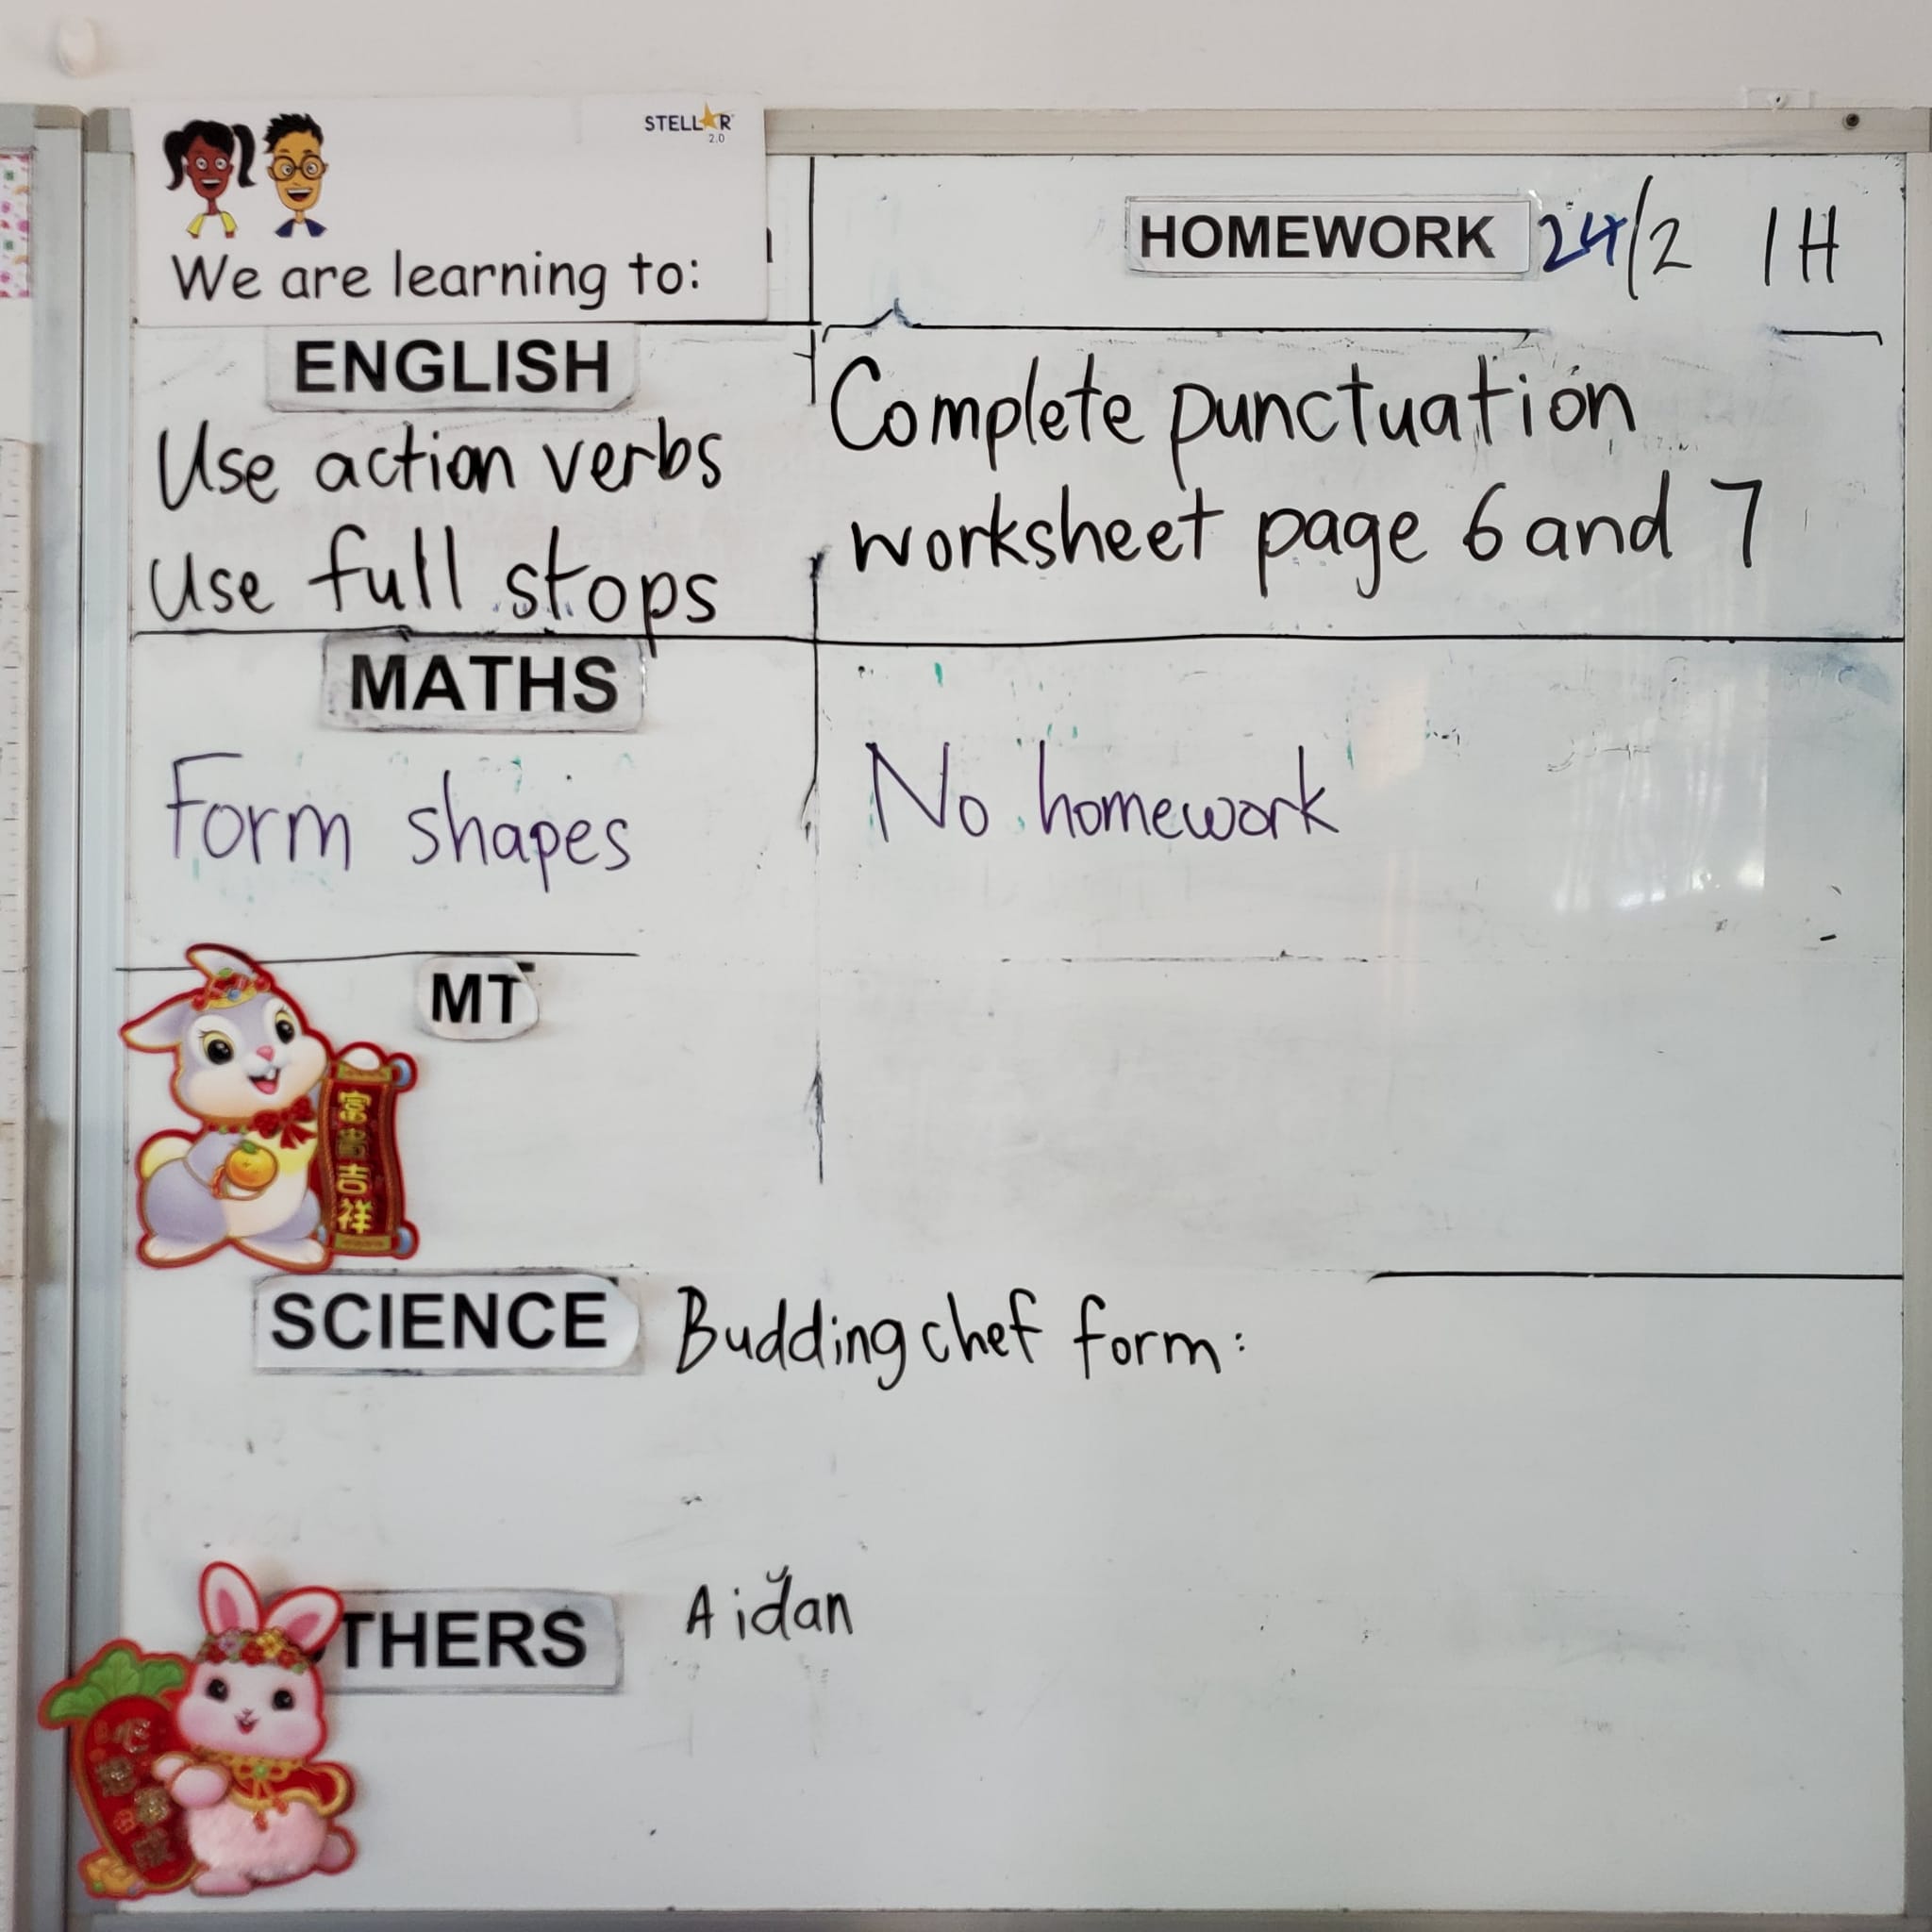 STELLAR
2.0
We are learning to:
HOMEWORK 24/2 1H
ENGLISH
Use action verbs
Use full stops
Complete punctuation
worksheet page 6 and 7
MATHS
Form shapes
No homework
MT
吉
祥
SCIENCE
Budding chef form:
THERS
Aidan